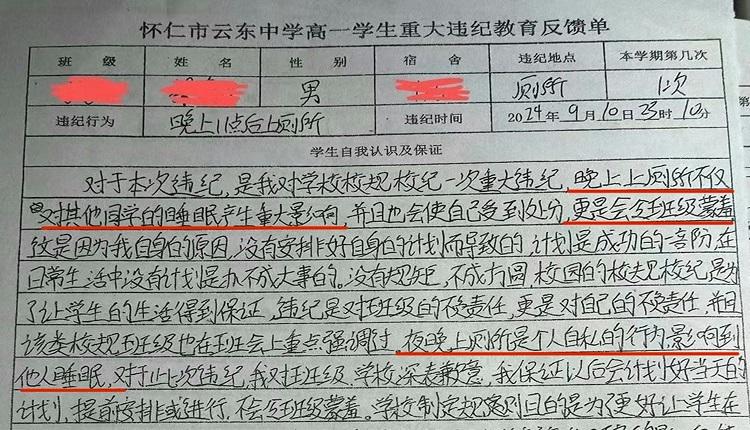 怀仁市云东中学高一学生重大违纪教育反馈单
班 级 姓 名 性 别 宿 舍 违纪地点 本学期第几次
男 厕所 1次
违纪行为 晚上11点后上厕所 违纪时间 2024年9月10日23时10分
学生自我认识及保证
对于本次违纪，是我对学校校规校纪一次重大违纪，晚上上厕所不仅
对其他同学的睡眠产生重大影响，并且也会使自己受到处分，更是会令班级蒙羞
这是因为我自身的原因，没有安排好自身的计划而导致的，计划是成功的音阶，在
日常生活中没有计划是办不成大事的。没有规矩，不成方圆，校园的校规校纪是为
了让学生的生活得到保证，违纪是对班级的不责任，更是对自己的不责任，并且
该类校规班级也在班会上重点强调过，夜晚上厕所是个人自私的行为，影响到
他人睡眠，对于此次违纪，我对班级、学校深表歉意，我保证以后会计划好当天的
计划，提前安排或进行，不会令班级蒙羞。学校制定规则目的是为了更好让学生在